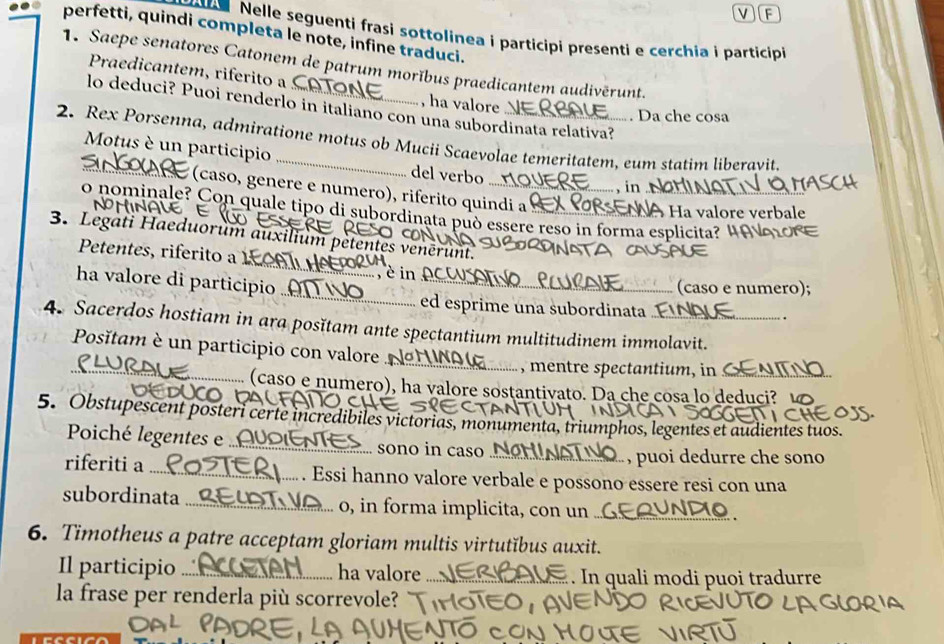 Nelle seguenti frasi sottolinea i participi presenti e cerchia i participi
V F
perfetti, quindi completa le note, infine traduci.
1. Saepe senatores Catonem de patrum morĭbus praedicantem audivērunt.
Praedicantem, riferito a CATONE, ha valore VERBALE. Da che cosa
lo deduci? Puoi renderlo in italiano con una subordinata relativa?
2. Rex Porsenna, admiratione motus ob Mucii Scaevolae temeritatem, eum statim liberavit.
Motus è un participio del verbo MOVERE, in NOMINATIVO MASCH
SINGOLARE (caso, genere e numero), riferito quindi a REX PORSENNA Ha valore verbale
o nominale? Con quale tipo di subordinata può essere reso in forma esplicita? HA VALORE
NOMINALE E PUÒ ESSERE RESO CON UNA SUBORDINATA CAUSALE
3. Legati Haeduorum auxilium petentes venērunt.
Petentes, riferito a LEGATI HAEDORUM, è in ACCUSATIVO PLURALE (caso e numero);
ha valore di participio ATTIVO ed esprime una subordinata FINALE.
4. Sacerdos hostiam in ara posĭtam ante spectantium multitudinem immolavit.
Posĭtam è un participio con valore NOMINALE, mentre spectantium, in GENITIVO
PLURALE (caso e numero), ha valore sostantivato. Da che cosa lo deduci? LO
DEDUCO DAL FATTO CHE SPECTANTIUM INDICA I SOGGETTI CHE OSS.
5. Obstupescent posteri certe incredibiles victorias, monumenta, triumphos, legentes et audientes tuos.
Poiché legentes e AUDIENTES sono in caso NOMINATIVO, puoi dedurre che sono
riferiti a POSTERI. Essi hanno valore verbale e possono essere resi con una
subordinata RELATIVA o, in forma implicita, con un GERUNDIO.
6. Timotheus a patre acceptam gloriam multis virtutĭbus auxit.
Il participio ACCETAM ha valore VERBALE. In quali modi puoi tradurre
la frase per renderla più scorrevole? TIMOTEO, AVENDO RICEVUTO LA GLORIA
DAL PADRE, LA AUMENTÒ CON MOLTE VIRTÙ